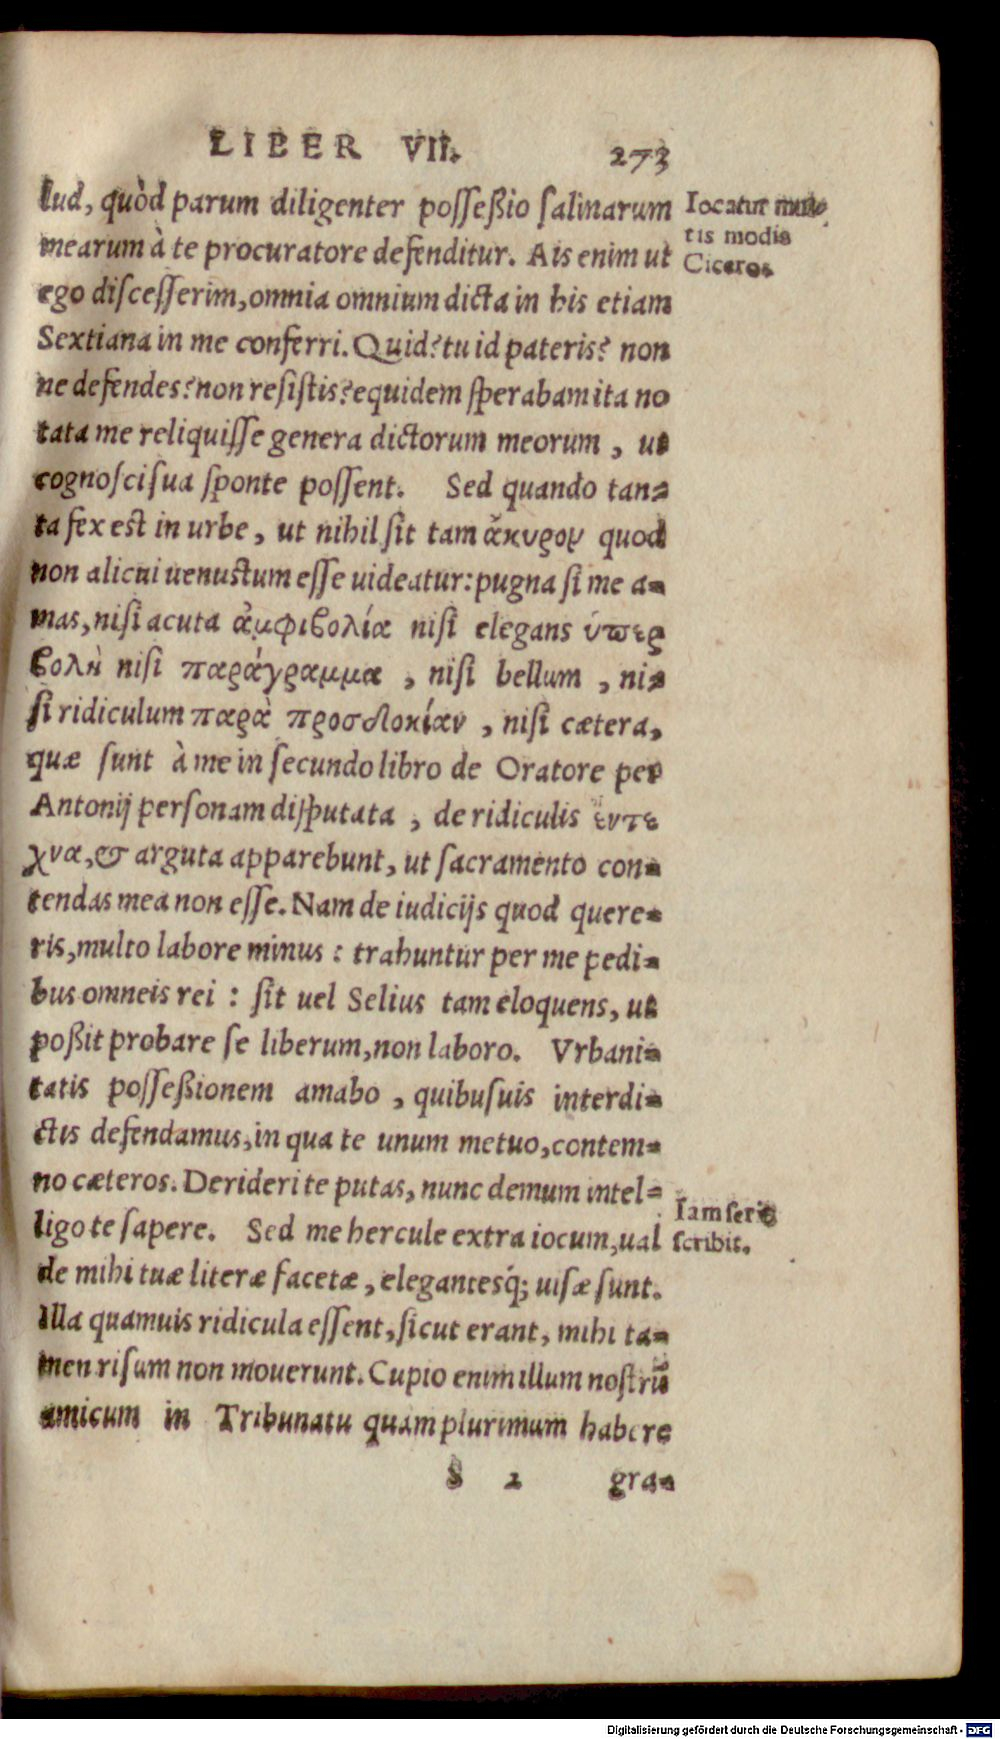 LIBER VII. 273
lud, quòd parum diligenter posseßio salinarum
mearum à te procuratore defenditur. Ais enim ut
ego discesserim, omnia omnium dicta in his etiam
Sextiana in me conferri. Quid? tu id pateris? non
ne defendes? non resistis? equidem sperabam ita no
tata me reliquisse genera dictorum meorum, ut
cognosci sua sponte possent. Sed quando tan-
ta fex est in urbe, ut nihil sit tam ἄκυρον quod
non alicui uenustum esse uideatur: pugna si me a-
mas, nisi acuta ἀμφιβολία nisi elegans ὑπερ
βολὴ nisi παράγραμμα, nisi bellum, ni-
si ridiculum παρὰ προσδοκίαν, nisi cætera,
quæ sunt à me in secundo libro de Oratore per
Antonij personam disputata, de ridiculis ἔντε
χνα, & arguta apparebunt, ut sacramento con-
tendas mea non esse. Nam de iudicijs quod quere-
ris, multo labore minus: trahuntur per me pedi-
bus omneis rei: sit uel Selius tam eloquens, ut
poßit probare se liberum, non laboro. Vrbani-
tatis posseßionem amabo, quibusuis interdi-
ctis defendamus, in qua te unum metuo, contem-
no cæteros. Derideri te putas, nunc demum intel-
ligo te sapere. Sed me hercule extra iocum, ual
de mihi tuæ literæ facetæ, elegantesq́; uisæ sunt.
Illa quamuis ridicula essent, sicut erant, mihi ta-
men risum non mouerunt. Cupio enim illum nostrũ
amicum in Tribunatu quam plurimum habere
S 2 gra-
Iocatur mul-
tis modis
Cicero.
Iam serio
scribit.
Digitalisierung gefördert durch die Deutsche Forschungsgemeinschaft - DFG